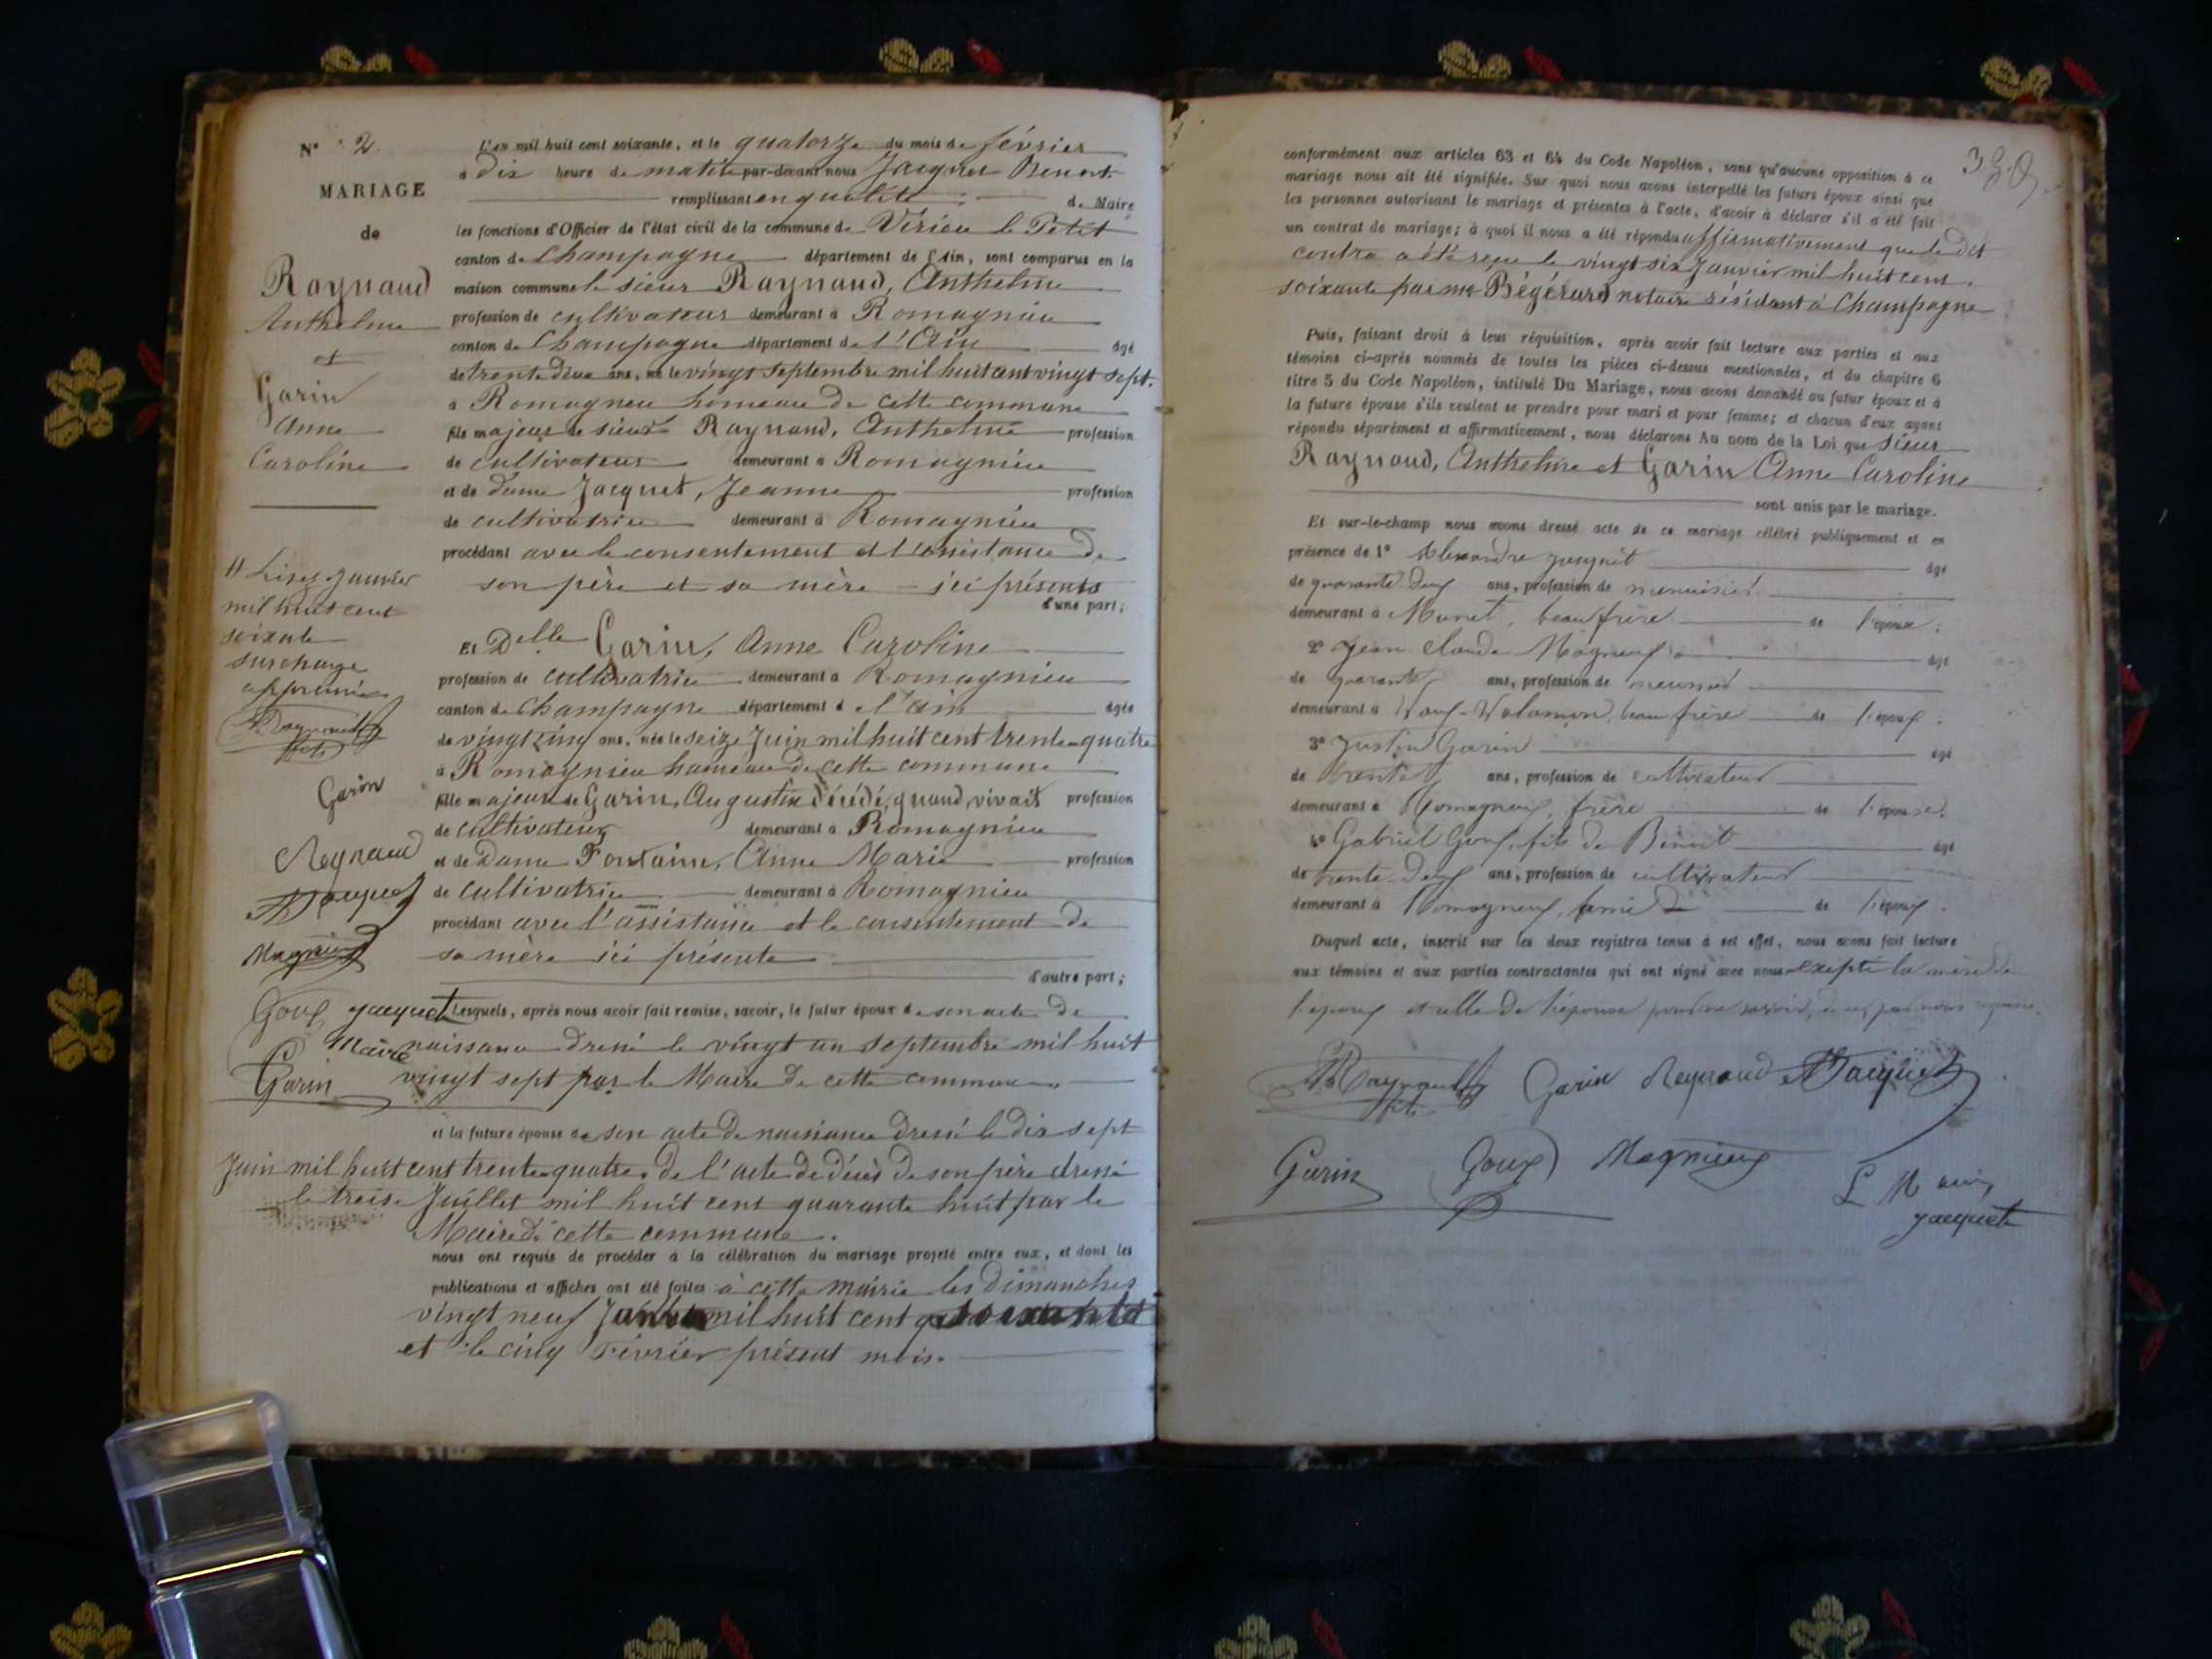 N° 2
MARIAGE
de
Raynaud
Anthelme
et
Garin
Anne
Caroline
L'an mil huit cent soixante, et le quatorze du mois de février
à dix heure de matin par-devant nous Jacquet Benoit
remplissant en qualité de Maire
les fonctions d'Officier de l'état civil de la commune de Virieu le Petit
canton de Champagne département de l'Ain, sont comparus en la
maison commune le sieur Raynaud, Anthelme
profession de cultivateur demeurant à Romagnieu
canton de Champagne département de l'Ain âgé
de trente deux ans, né le vingt septembre mil huit cent vingt sept.
à Romagneu hameau de cette commune
fils majeur de sieur Raynaud, Anthelme profession
de cultivateur demeurant à Romagnieu
et de dame Jacquet, Jeanne profession
de cultivatrice demeurant à Romagnieu
procédant avec le consentement et l'assistance de
son père et sa mère ici présents
d'une part;
Et Delle Garin, Anne Caroline
profession de cultivatrice demeurant à Romagnieu
canton de Champagne département de l'ain âgée
de vingt cinq ans, née le seize Juin mil huit cent trente quatre
à Romagnieu hameau de cette commune
fille majeure de Garin, Augustin décédé, quand vivait profession
de cultivateur demeurant à Romagnieu
et de Dame Fontaine, Anne Marie profession
de cultivatrice demeurant à Romagnieu
procédant avec l'assistance et le consentement de
sa mère ici présente
d'autre part;
Lesquels, après nous avoir fait remise, savoir, le futur époux de son acte de
naissance dressé le vingt un septembre mil huit
vingt sept par le Maire de cette commune
et la future épouse de son acte de naissance dressé le dix sept
Juin mil huit cent trente quatre. de l'acte de décès de son père dressé
le treise Juillet mil huit cent quarante huit par le
Maire de cette commune.
nous ont requis de procéder à la célébration du mariage projeté entre eux, et dont les
publications et affiches ont été faites à cette mairie les dimanches
vingt neuf mil huit cent
et le cinq Février présent mois.
// Lisez Janvier
mil huit cent
soixante
surcharge
approuvée
Garin
Reynaud
Jacquet
Magnieux
Goux Jacquet
Maire
Garin
conformément aux articles 63 et 64 du Code Napoléon, sans qu'aucune opposition à ce
mariage nous ait été signifiée. Sur quoi nous avons interpellé les futurs époux ainsi que
les personnes autorisant le mariage et présentes à l'acte, d'avoir à déclarer s'il a été fait
un contrat de mariage; à quoi il nous a été répondu affirmativement que le dit
contra a été reçu le vingt six Janvier mil huit cent
soixante par me Bégérard notaire résidant à Champagne
Puis, faisant droit à leur réquisition, après avoir fait lecture aux parties et aux
témoins ci-après nommés de toutes les pièces ci-dessus mentionnées, et du chapitre 6
titre 5 du Code Napoléon, intitulé Du Mariage, nous avons demandé au futur époux et à
la future épouse s'ils veulent se prendre pour mari et pour femme; et chacun d'eux ayant
répondu séparément et affirmativement, nous déclarons Au nom de la Loi que sieur
Raynaud, Anthelme et Garin Anne Caroline
sont unis par le mariage.
Et sur-le-champ nous avons dressé acte de ce mariage célébré publiquement et en
présence de 1° Alexandre Jacquet âgé
de quarante deux ans, profession de menuisier
demeurant à Munet, beau frère de l'époux;
2° Jean Claude Magnieux âgé
de quarante ans, profession de meunier
demeurant à beau frère de l'époux;
3° Justin Garin âgé
de trente ans, profession de cultivateur
demeurant à Romagneux, frère de l'épouse.
4° Gabriel Goux, fils de Benoit âgé
de trente-deux ans, profession de cultivateur
demeurant à Romagneux, ami de l'époux.
Duquel acte, inscrit sur les deux registres tenus à cet effet, nous avons fait lecture
aux témoins et aux parties contractantes qui ont signé avec nous excepté la mère de
l'époux et celle de l'épouse pour ne savoir, de ce par nous requise.
Raynaud fils Garin Reynaud Jacquet
Garin Goux Magnieux
L Maire
Jacquet